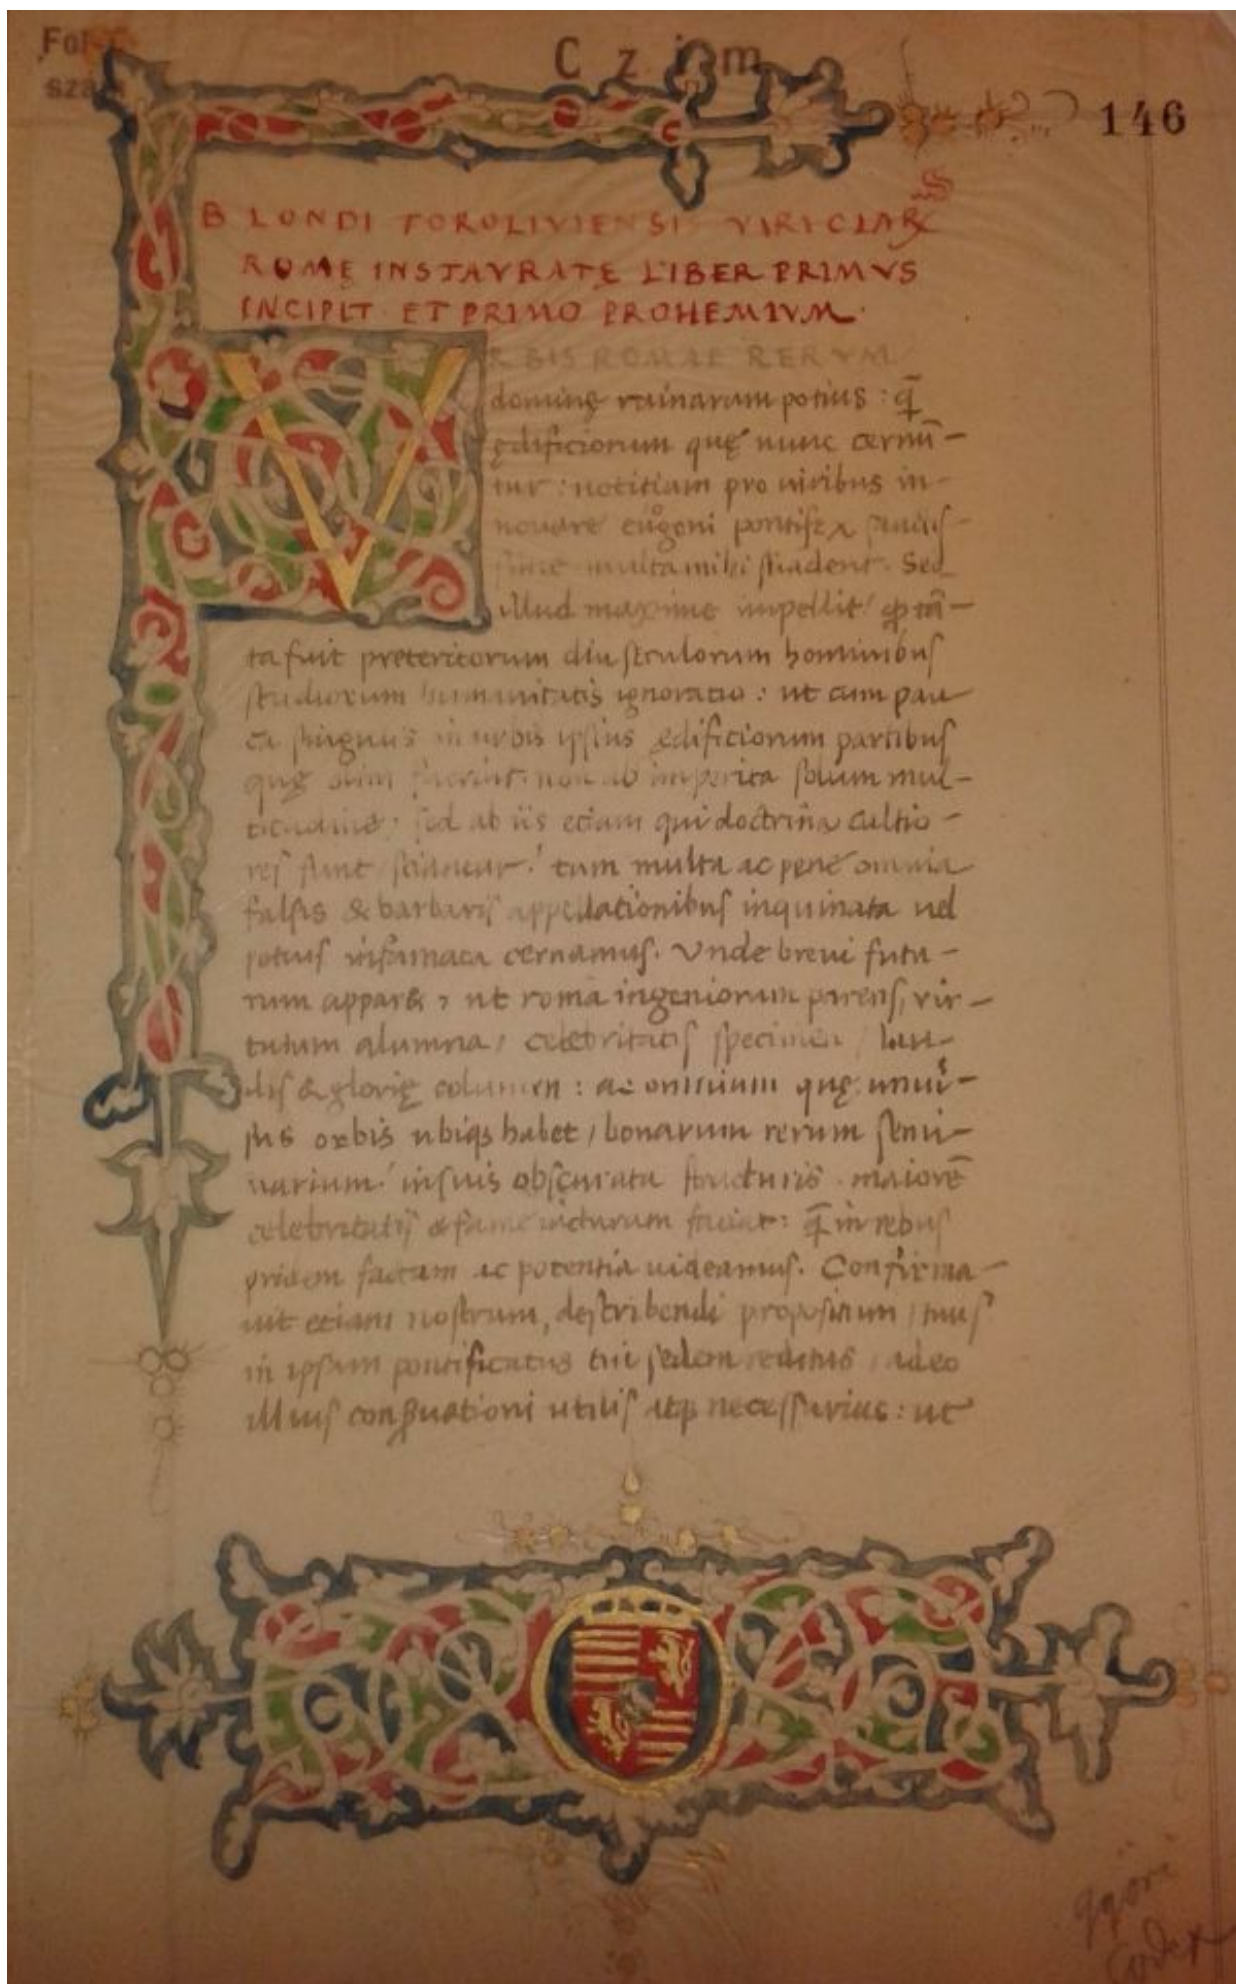 C z i m
146
BLONDI FOROLIVIENSIS VIRI CLAR
ROMĘ INSTAVRATĘ LIBER PRIMVS
INCIPIT ET PRIMO PROHEMIVM.
VRBIS ROMAE RERVM
dominę ruinarum potius: q̄
ędificiorum quę nunc cernū-
tur: notitiam pro uiribus in-
nouare eugeni pontifex sanctis-
sime multa mihi suadent. Sed
illud maxime impellit: tā-
ta fuit preteritorum diu seculorum hominibus
studiorum humanitatis ignoratio: ut cum pau
ca in urbis ipsius ędificiorum partibus
quę olim fuerint: non ab imperita solum mul-
titudine: sed ab iis etiam qui doctrina cultio-
res sunt sciantur: tum multa ac pene omnia
falsis & barbaris appellationibus inquinata uel
potius infamata cernamus. Vnde breui futu-
rum appar&, ut roma ingeniorum parens, vir-
tutum alumna, celebritatis specimen, lau-
dis & glorię columen: ac omnium quę
sus orbis ubiq; habet, bonarum rerum semi-
narium: in suis obscurata structuris maiorē
celebritatis & fame iacturam faciat: q̄ in rebus
pridem factam ac potentia uideamus. Confirma-
uit etiam nostrum, describendi propositum, tuus
in ipsam pontificatus tui sedem reditus, adeo
illius conseruationi utilis atq; necessarius: ut
Győri
Codex